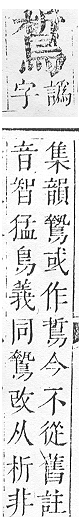 譌字
集韻鷙或作今不從舊註
音智猛鳥義同鷙改从析非